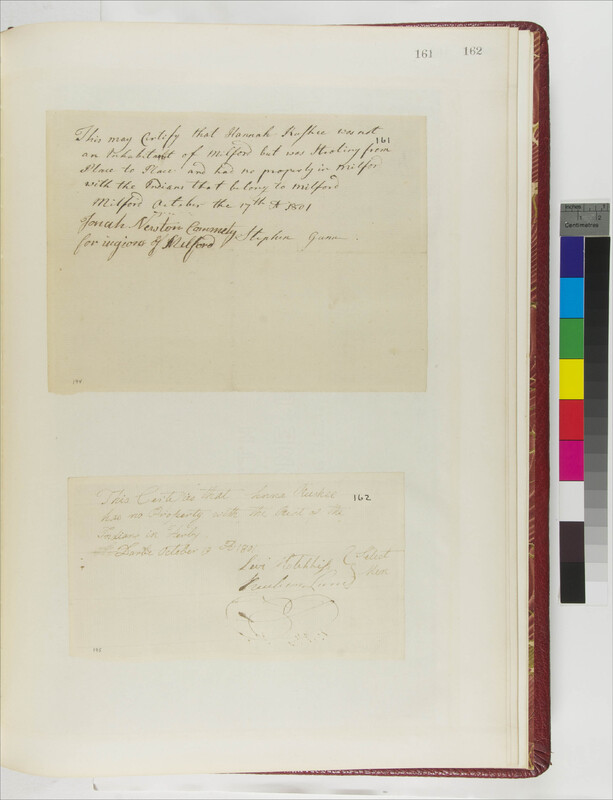 161 162
This may Certify that Hannah was not
161
an Inhabitant of Milford but was Stroling from
Place to Place and had no property in Milford
with the Indians that belong to Milford
Milford October the 17th AD 1801
Jonah Newton Commety Stephen Gunn
for ingions of Milford
This Certifies that
162
has no Property with the Rest of the
Indians in Derby
October AD 1801
Levi Hotchkiss Select
Men
Index
Centimetres